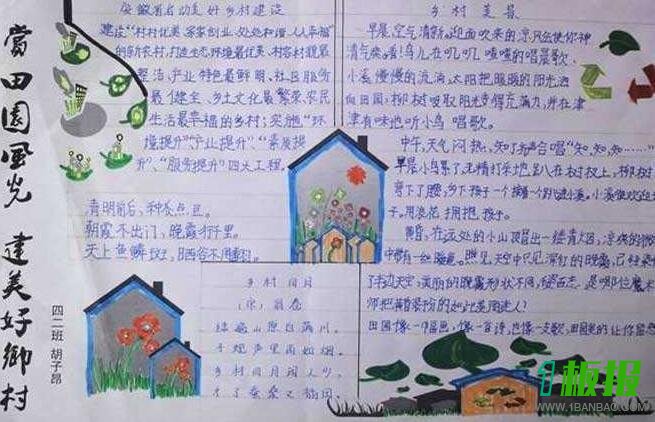 赏田园风光 建美好乡村
四二班 胡子昂
安徽省启动美好乡村建设
建设"村村优美、家家创业、处处和谐、人人幸福"
的新农村,打造生态环境最优美、村容村貌最
整洁、产业特色最鲜明、社区服务
最健全、乡土文化最繁荣、农民
生活最幸福的乡村;实施"环
境提升""产业提升"、"素质提
升"、"服务提升"四大工程。
清明前后,种瓜点豆。
朝霞不出门,晚霞行千里。
天上鱼鳞斑,晒谷不用翻
乡村四月
(宋)翁卷
绿遍山原白满川,
子规声里雨如烟。
乡村四月闲人少,
才了蚕桑又插田。
乡村美景
早晨,空气清新。迎面吹来的凉风会使你神
清气爽。看!鸟儿在叽叽喳喳的唱晨歌,
小溪慢慢的流淌,太阳把暖暖的阳光洒
向田园;柳树吸取阳光变得充满力,并在津
津有味地听小鸟唱歌。
中午,天气闷热,知了齐声合唱"知、知、知……"
早晨小鸟累了,无精打采地趴在树枝上,柳树
弯下了腰,乡下孩子一个接着一个跳进小溪。小溪
子。用浪花拥抱孩子。
傍晚,在远处的小山顶冒出一缕青烟
中带有一丝暖意。瞧见,天空中只见深红的晚霞,
了半边天空;美丽的晚霞形状不同,千姿百态,是哪位魔术
师把傍晚装扮的如此美丽迷人?
田园像一幅画,像一首诗,也像一支歌,田园美的让你
1板报
WWW.1BANBAO.COM